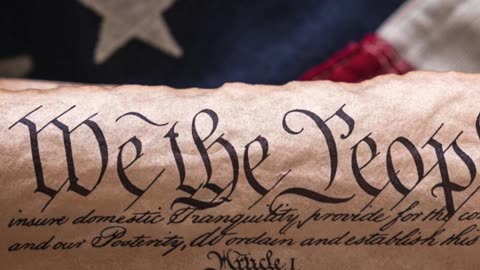 We the Peop
insure domestic Tranquility, provide for the co
and our Posterity, do ordain and establish this
Article I